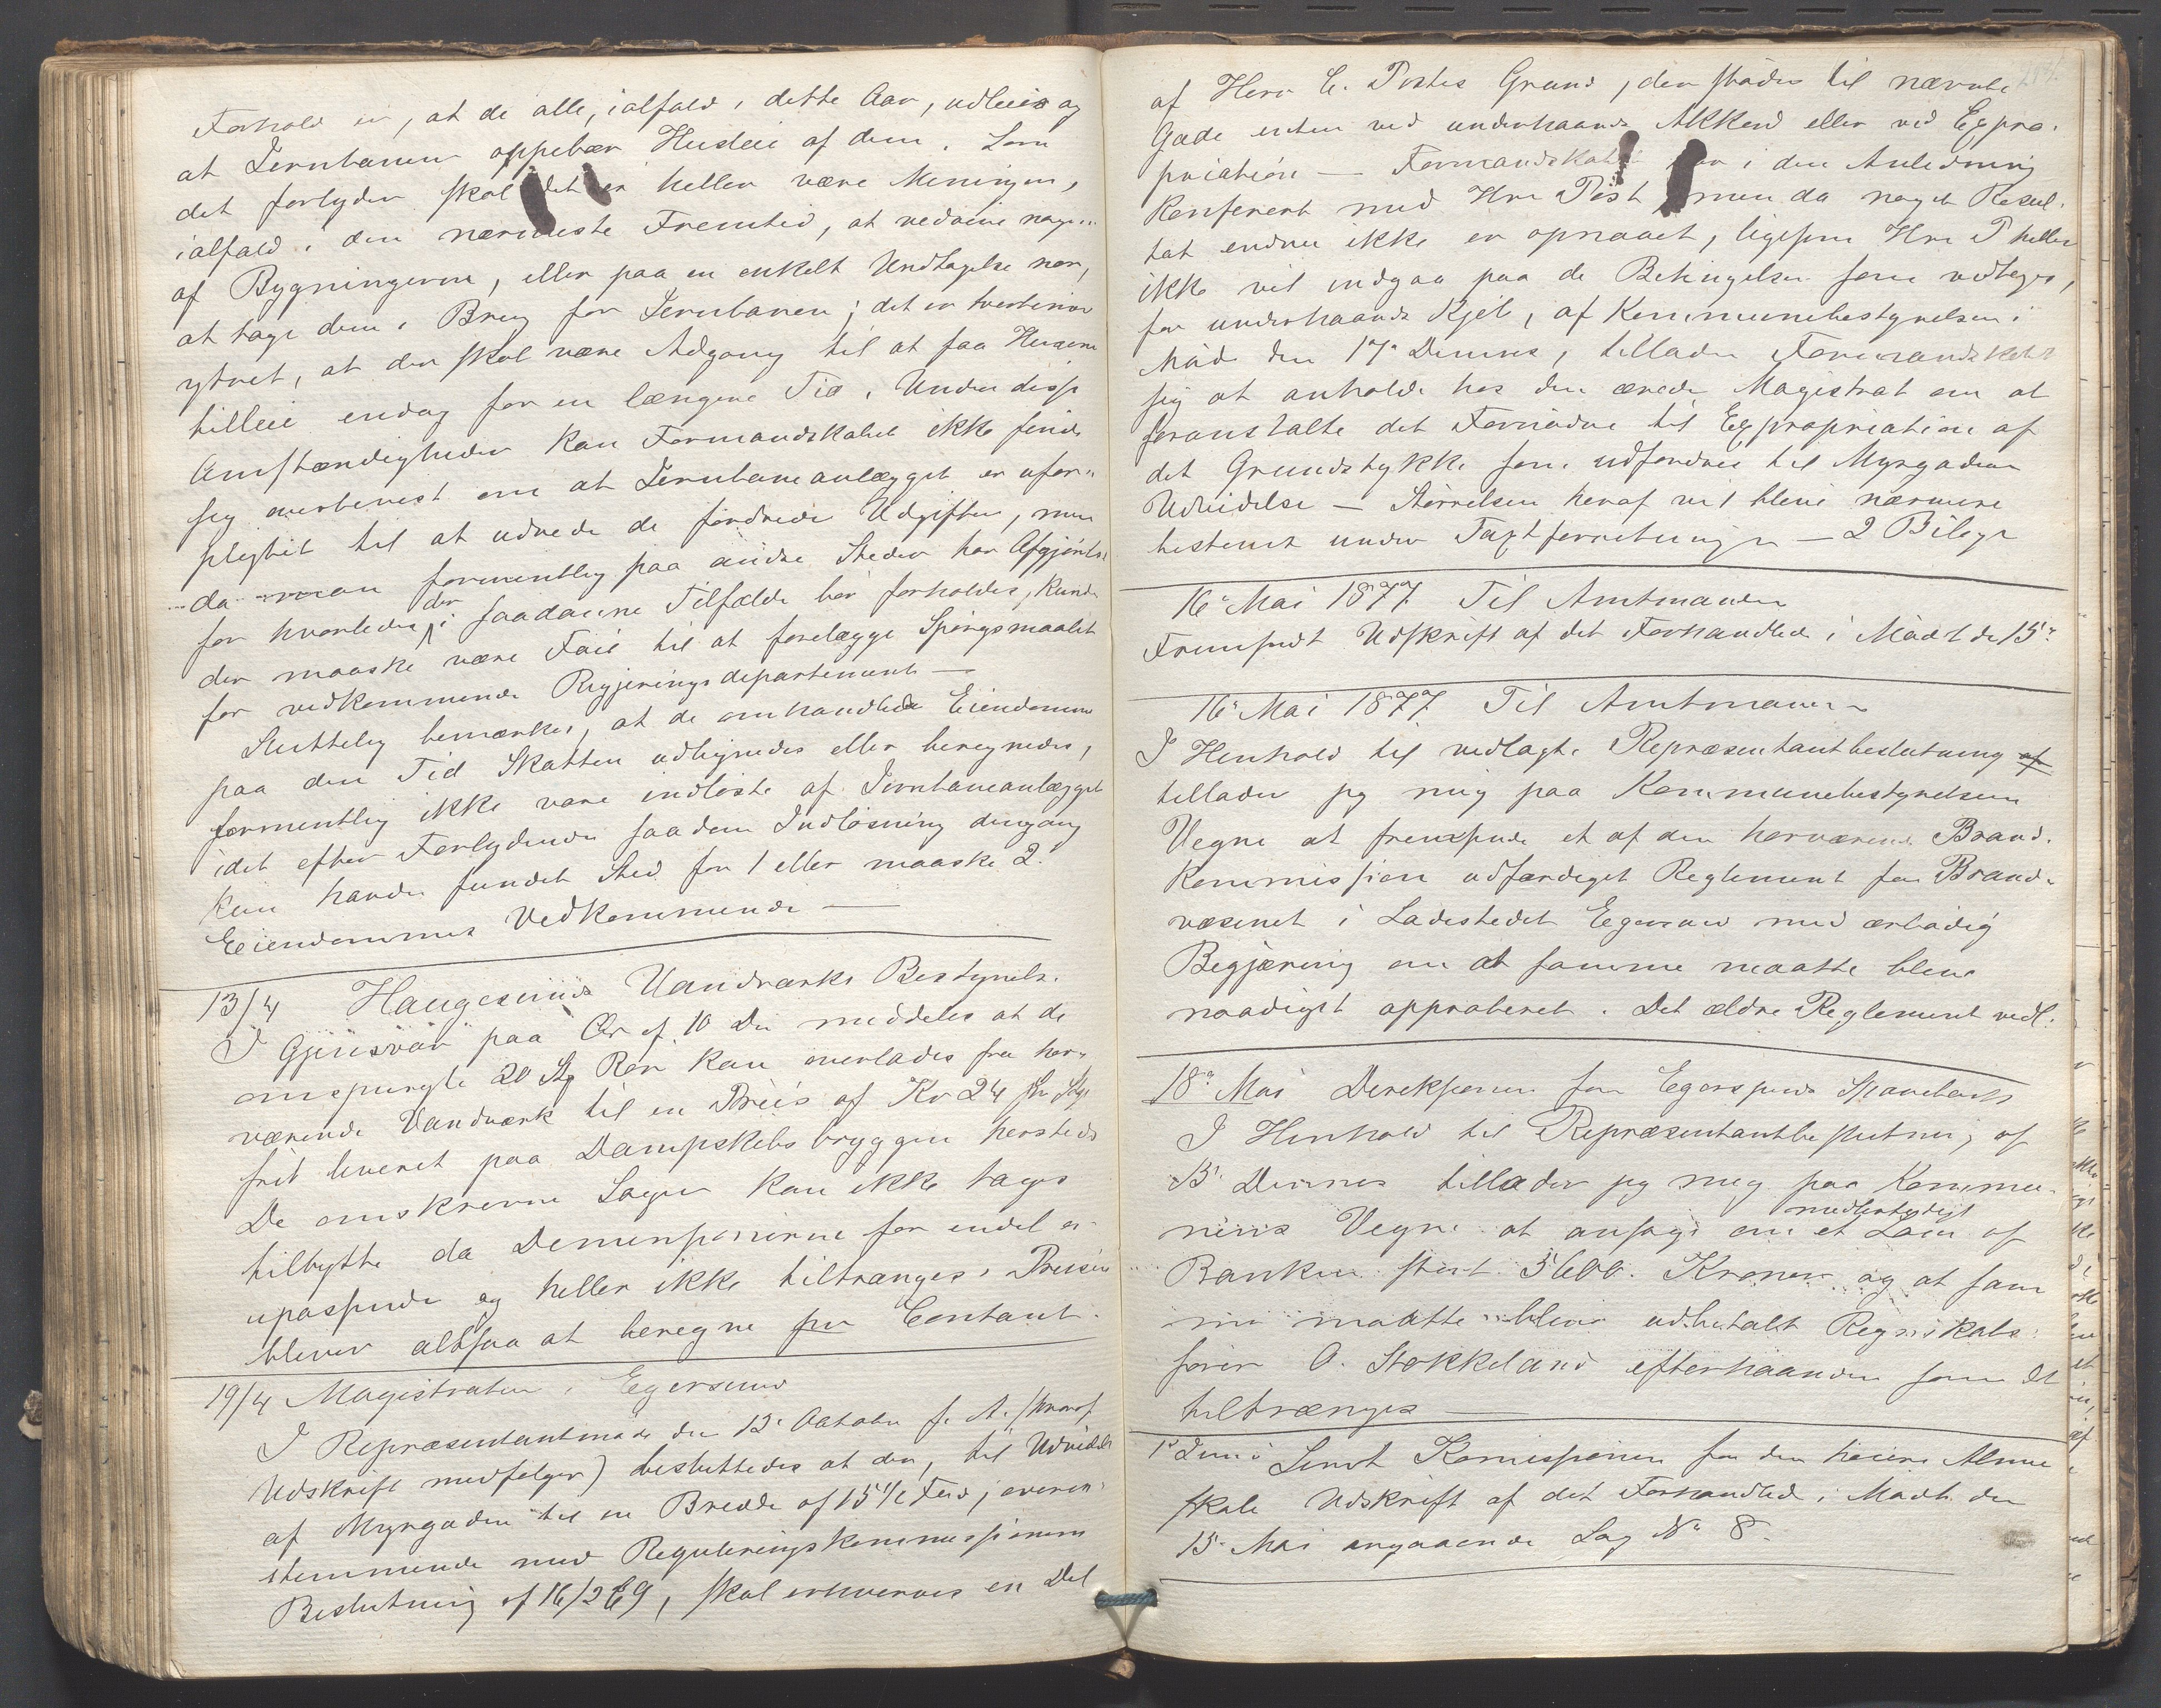 Forhold er, at de alle, ialfald i dette Aar, udleies og
at Jernbanen oppebær Husleie af dem. Som
det forlyder skal det ei heller være Meningen,
ialfald i den nærmeste Fremtid, at nedrive nogen
af Bygningerne, eller paa en enkelt Undtagelse nær,
at tage dem i Brug for Jernbanen; det er tvertimod
ytret, at der skal være Adgang til at faa Husene
tilleie endog for en længere Tid. Under disse
Omstændigheder kan Formandskabet ikke finde
sig overbevist om at Jernbaneanlægget er ufor-
pligtet til at udrede de fordrede Udgifter, men
da man formentlig paa andre Steder har Afgjørelse
for hvorledes der i saadanne Tilfælde bør forholdes, kunde
der maaske være Føie til at forelægge Spørgsmaalet
for vedkommende Regjeringsdepartement —
Sluttelig bemærkes, at de omhandlede Eiendomme
paa den Tid Skatten udlignedes eller beregnedes,
formentlig ikke vare indløste af Jernbaneanlægget
idet efter Forlydende saadan Indløsning dengang
kun havde fundet Sted for 1 eller maaske 2
Eiendommes Vedkommende —
13/4 Haugesunds Vandværks Bestyrelse.
I Gjensvar paa Ær. af 10 Ds meddeles at de
omspurgte 20 St Rør kan overlades fra her-
værende Vandværk til en Priis af Kr 24 pr Stk
frit leveret paa Dampskibsbryggen hersteds
De omskrevne Sager kan ikke tages
tilbytte da Dimensionerne for endel er
upassende og heller ikke tiltrænges. Prisen
bliver altsaa at beregne pr Contant.
19/4 Magistraten i Egersund
I Repræsentantmøde den 13 October f. A. (hvoraf
Udskrift medfølger) besluttedes at der, til Udvidelse
af Myrgaden til en Bredde af 15 1/2 Fod, overen-
stemmende med Reguleringskommissionens
Beslutning af 16/2 69, skal erhverves en Del
af Herr C. Postes Grund, der støder til nævnte
Gade enten ved underhaands Akkord eller ved Expro-
priation — Formandskabet har i den Anledning
konfereret med Hrr Post men da noget Resul-
tat endnu ikke er opnaaet, ligesom Hrr P heller
ikke vil indgaa paa de Betingelser som vedtoges,
for underhaands Kjøb, af Kommunebestyrelsen i
Møde den 17 Dennes, tillader Formandskabet
sig at anholde hos den ærede Magistrat om at
foranstalte det Fornødne til Expropriation af
det Grundstykke som udfordres til Myrgadens
Udvidelse — Størrelsen heraf vil blive nærmere
bestemt under Taxtforretningen — 2 Bilage
16 Mai 1877 Til Amtmanden
Fremsendt Udskrift af det Forhandlede i Mødet de 15de
16 Mai 1877 Til Amtmanden
I Henhold til vedlagte Repræsentantbeslutning af
tillader jeg mig paa Kommunebestyrelsens
Vegne at fremsende et af den herværende Brand-
kommission udfærdiget Reglement for Brand-
væsenet i Ladestedet Egersund med ærbødig
Begjæring om at samme maatte blive
naadigst approberet. Det ældre Reglement vedl.
18de Mai Direksionen for Egersunds Sparebank
I Henhold til Repræsentantbeslutning af
15 Dennes tillader jeg mig paa Kommu-
nens Vegne at ansøge om et midlertidigt Laan af
Banken stort 3600 Kroner og at sam
me maatte blive udbetalt Regnskabs-
fører O. Stokkeland efterhaanden som det
tiltrænges —
1 Juni Sendt Komissionen for den høiere Almue
skole Udskrift af det Forhandlede i Møde den
15 Mai angaaende Sag No 8